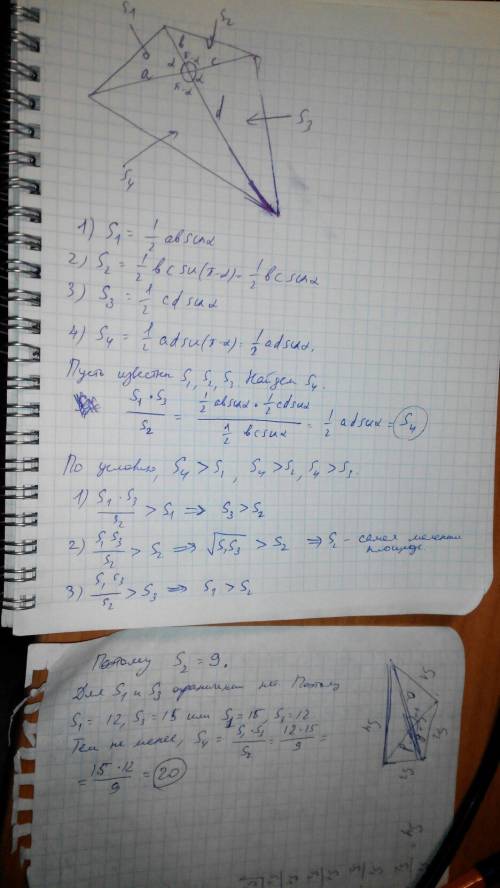 S₁ S₂
a b c d
α π-α α π-α
S₃
S₄
1) S₁ = 1/2 ab sinα
2) S₂ = 1/2 bc sin(π-α) = 1/2 bc sinα
3) S₃ = 1/2 cd sinα
4) S₄ = 1/2 ad sin(π-α) = 1/2 ad sinα.
Пусть известны S₁, S₂, S₃. Найдем S₄.
(S₁·S₃)/S₂ = (1/2 ab sinα · 1/2 cd sinα)/(1/2 bc sinα) = 1/2 ad sinα = S₄
По условию, S₄ > S₁, S₄ > S₂, S₄ > S₃.
1) (S₁·S₃)/S₂ > S₁ ⇒ S₃ > S₂
2) (S₁S₃)/S₂ > S₂ ⇒ √S₁S₃ > S₂ ⇒ S₂ - самая
площадь
3) (S₁S₃)/S₂ > S₃ ⇒ S₁ > S₂
Потому S₂ = 9.
Для S₁ и S₃ ограничений нет. Потому
S₁ = 12, S₃ = 15 или S₁ = 15, S₃ = 12
Тем не менее, S₄ = (S₁·S₃)/S₂ = (12·15)/9 =
= (15·12)/9 = 20